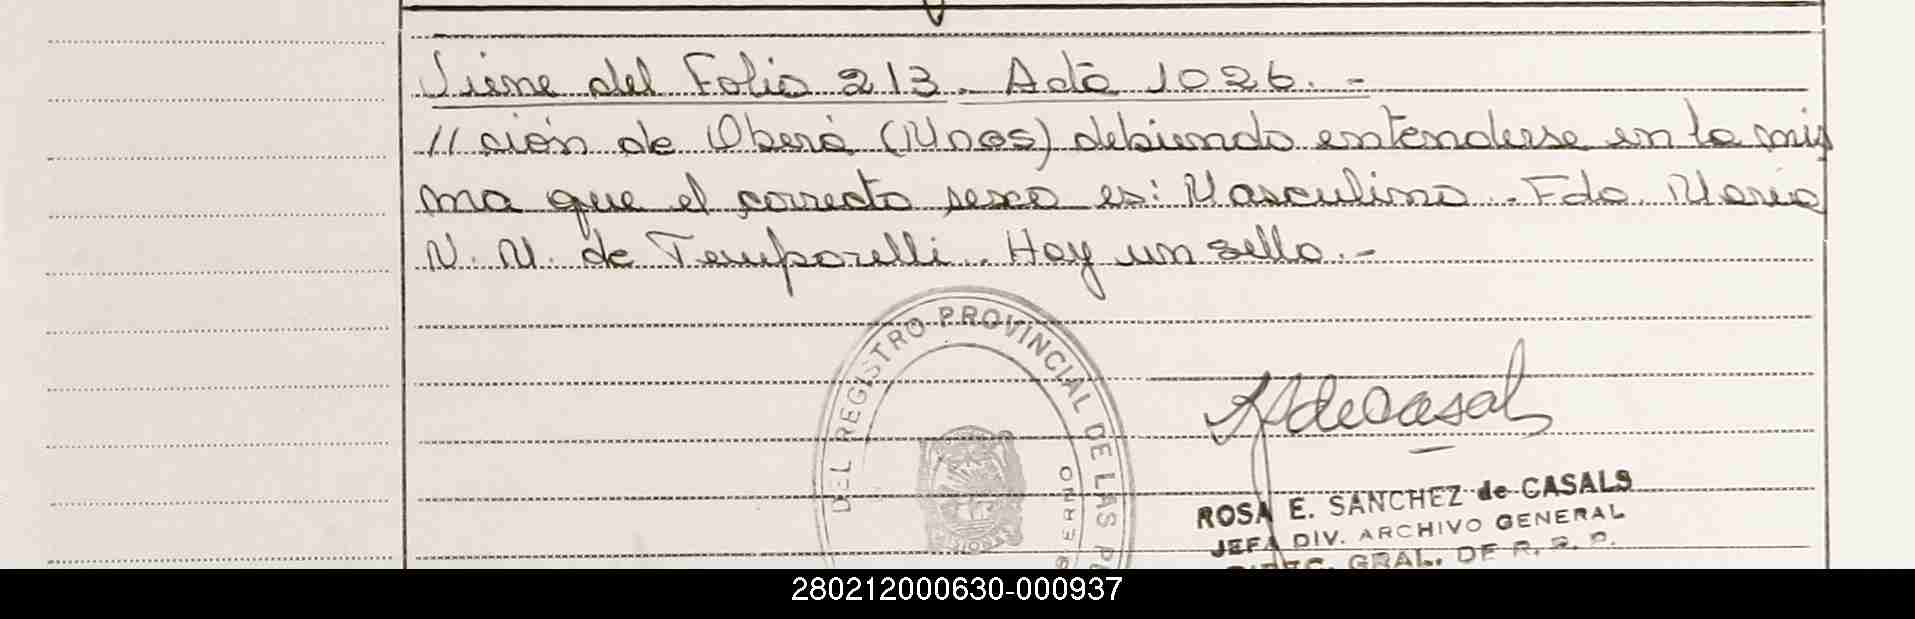 Viene del Folio 213. Acta 1026.-
//ción de Oberá (Mnes) debiendo entenderse en la mis
ma que el correcto sexo es: Masculino. Fdo. María
N. N. de Temporelli. Hay un sello.-
DEL REGISTRO PROVINCIAL DE LAS
ROSA E. SANCHEZ de CASALS
JEFA DIV. ARCHIVO GENERAL
GRAL. DE R. P. P.
280212000630-000937